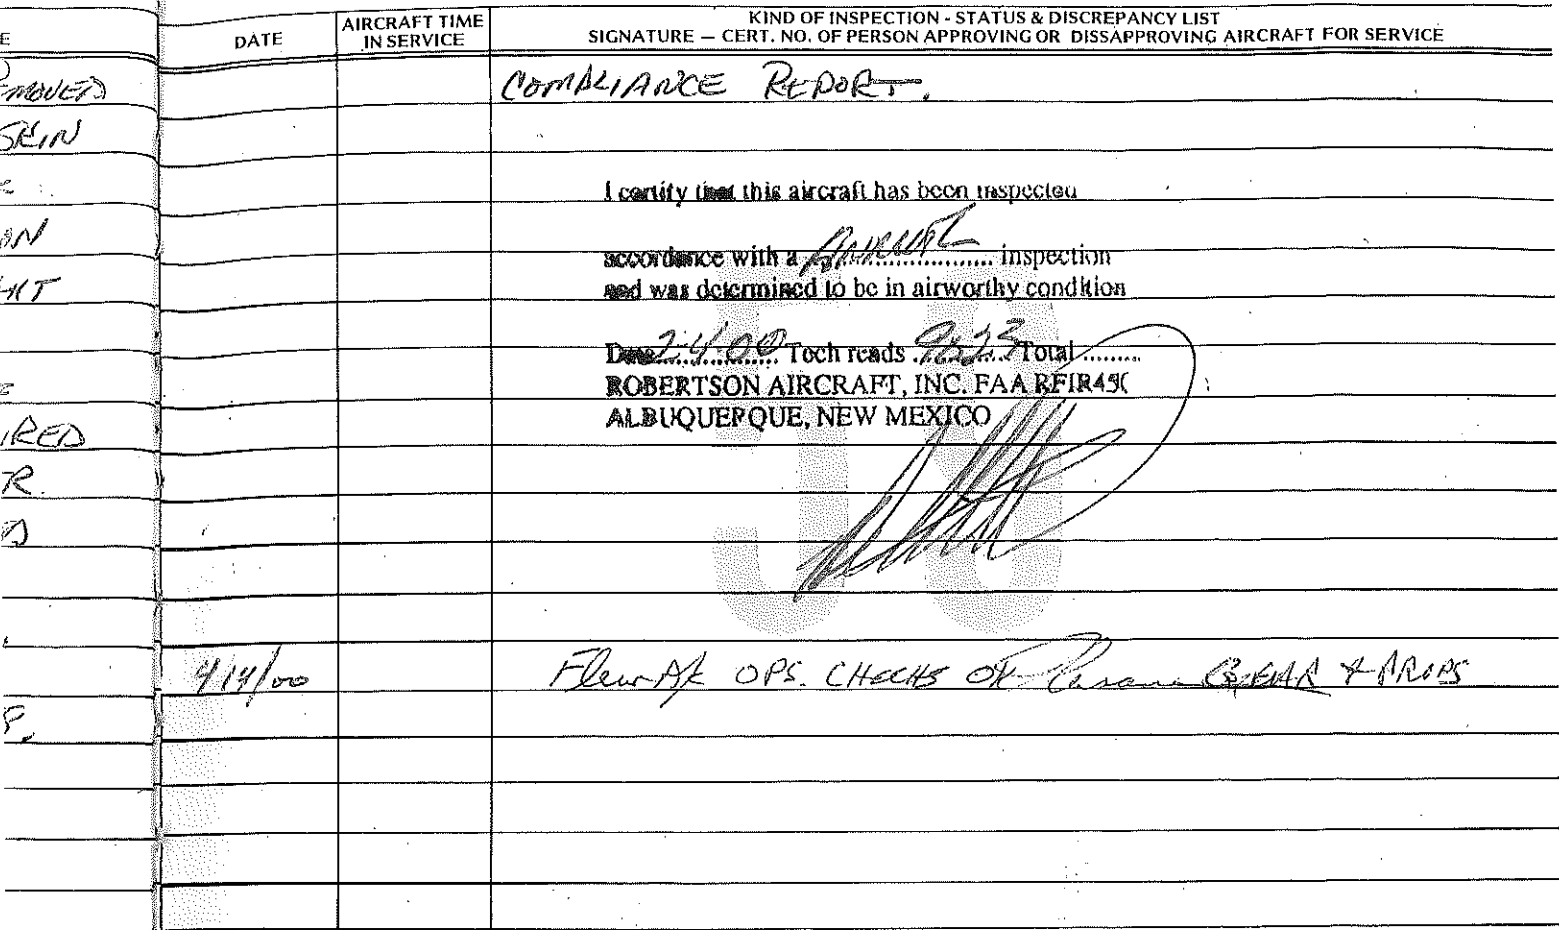 E
MOVED
SKIN
ON
HT
IRED
R.
P.
DATE
AIRCRAFT TIME
IN SERVICE
KIND OF INSPECTION - STATUS & DISCREPANCY LIST
SIGNATURE — CERT. NO. OF PERSON APPROVING OR DISSAPPROVING AIRCRAFT FOR SERVICE
COMPLIANCE REPORT.
I certify that this aircraft has been inspected
accordance with a ANNUAL inspection
and was determined to be in airworthy condition
Date 2-4-00 Tech reads 9823 Total ........
ROBERTSON AIRCRAFT, INC. FAA RFIR45(
ALBUQUERQUE, NEW MEXICO
58
4/14/00 Flew A/C OPS. CHECKS OK GEAR & PROPS